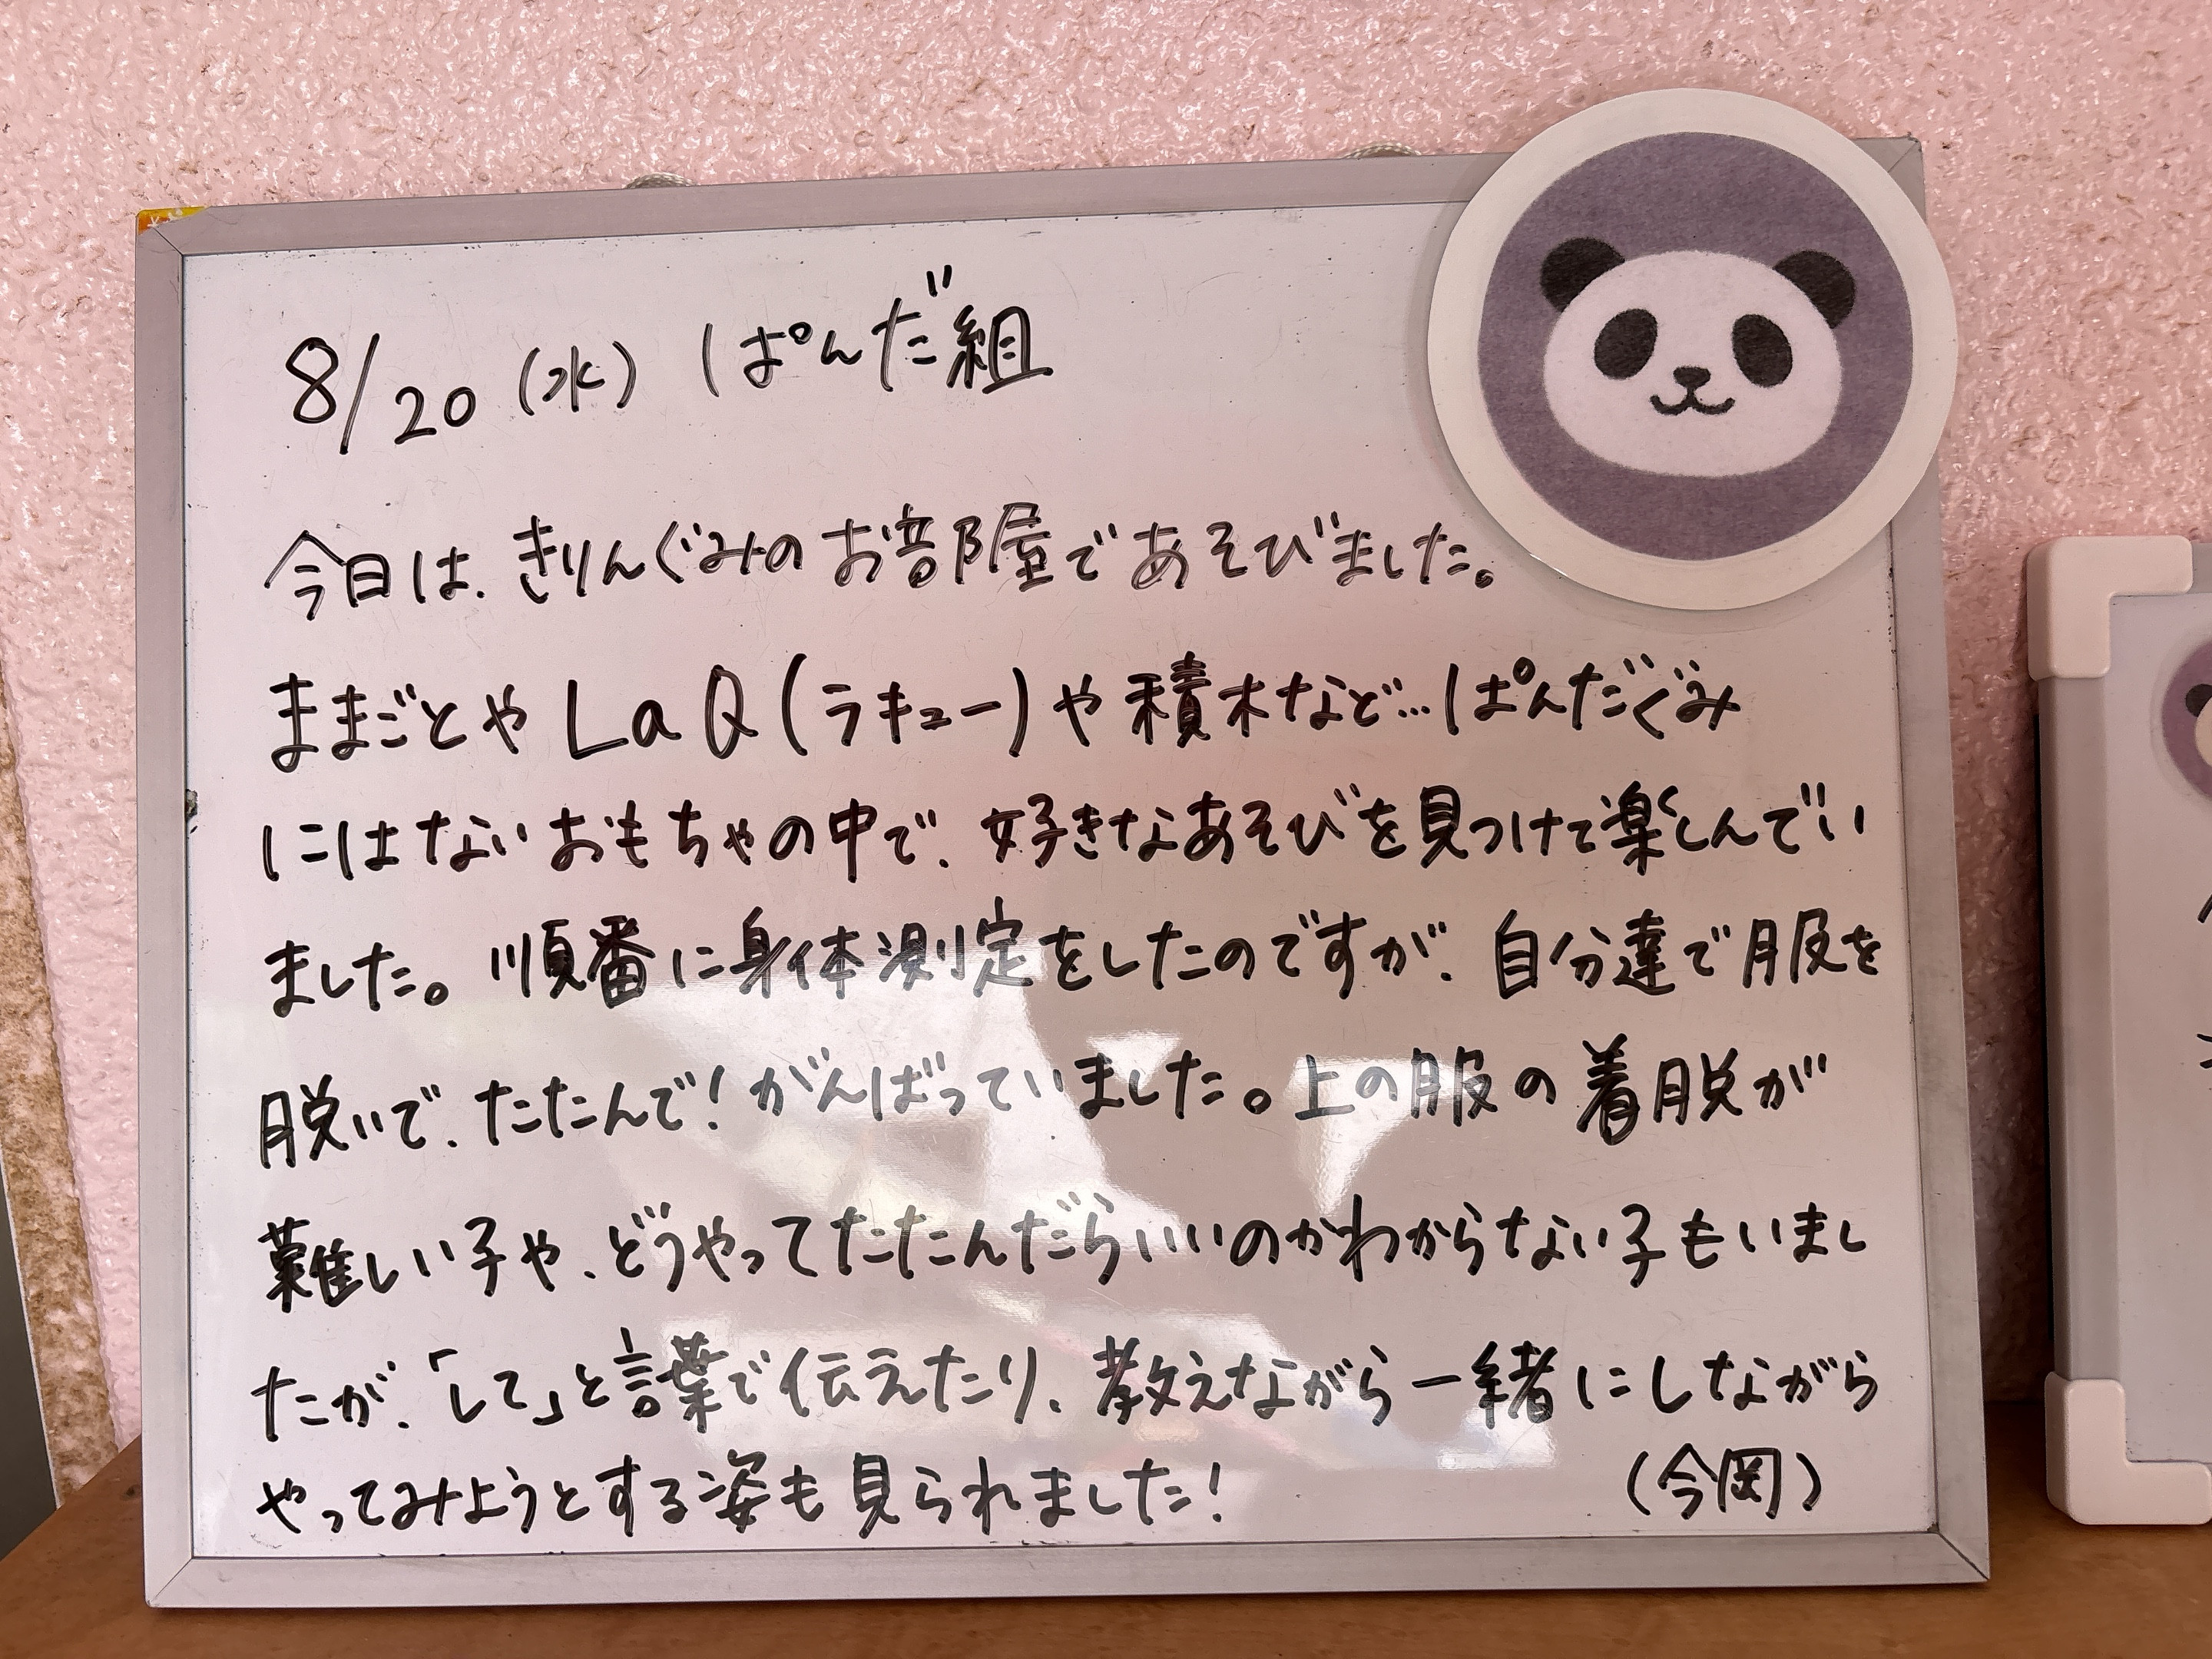 8/20(水) ぱんだ組
今日は、きりんぐみのお部屋であそびました。
ままごとやLaQ(ラキュー)や積木など…ぱんだぐみ
にはないおもちゃの中で、好きなあそびを見つけて楽しんでい
ました。順番に身体測定をしたのですが、自分達で服を
脱いで、たたんで！がんばっていました。上の服の着脱が
難しい子や、どうやってたたんだらいいのかわからない子もいまし
たが、「して」と言葉で伝えたり、教えながら一緒にしながら
やってみようとする姿も見られました！ (今岡)